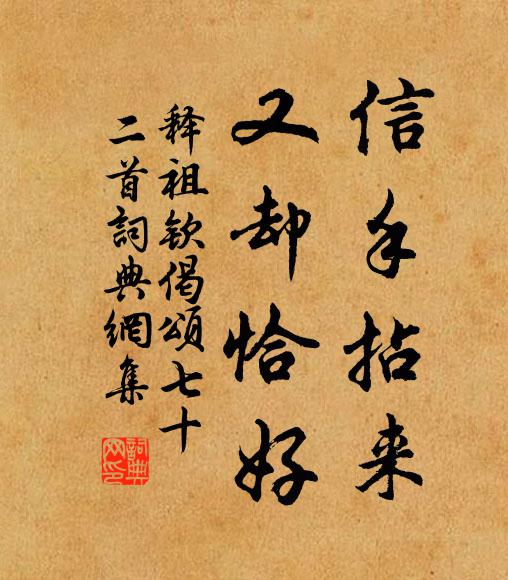 信手拈来
又却恰好
释祖钦偈頌七十
二首詞典網集
詞典
网印